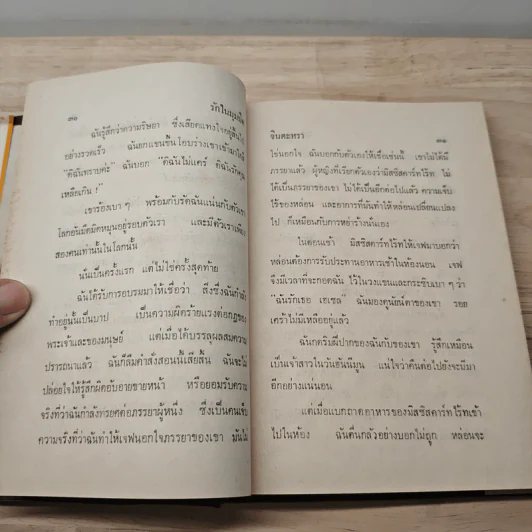 ๓๐
รักในมุมมืด
ฉันรู้สึกว่าความริษยา ซึ่งเสียดแทงใจอยู่นั้น
อย่างรวดเร็ว ฉันยกแขนขึ้นโอบร่างเขาเข้ามา
“ดิฉันทราบค่ะ” ฉันบอก “ดิฉันไม่แคร์ ดิฉันรักคุณ
เหลือเกิน !”
เขาร้องเบา ๆ พร้อมกับรัดฉันแน่นกับตัวเขา
โลกอันมืดมิดหมุนอยู่รอบตัวเรา และมีตัวเราเพียง
สองคนเท่านั้นในโลกนั้น
นั่นเป็นครั้งแรก แต่ไม่ใช่ครั้งสุดท้าย
ฉันได้รับการอบรมมาให้เชื่อว่า สิ่งซึ่งฉันกำลัง
ทำอยู่นั้นเป็นบาป เป็นความผิดร้ายแรงต่อกฎของ
พระเจ้าและของมนุษย์ แต่เมื่อได้บรรลุผลสมความ
ปรารถนาแล้ว ฉันก็ลืมคำสั่งสอนนั้นเสียสิ้น ฉันจะไม่
ปล่อยใจให้รู้สึกผิดอับอายขายหน้า หรือยอมรับความ
จริงที่ว่าฉันกำลังทรยศต่อภรรยาผู้หนึ่ง ซึ่งเป็นคนเจ็บ
ความจริงที่ว่าฉันทำให้เจฟนอกใจภรรยาของเขา มันไม่
จินตะหรา
๓๑
ใช่นอกใจ ฉันบอกกับตัวเองให้เชื่อเช่นนี้ เขาไม่ได้มี
ภรรยาแล้ว ผู้หญิงที่เรียกตัวเองว่ามิสซิสคาร์ทไร้ท ไม่
ได้เป็นภรรยาของเขา ไม่ได้เป็นอีกต่อไปแล้ว ความเจ็บ
ไข้ของหล่อน และอาการที่มันทำให้หล่อนเปลี่ยนแปลง
ไป ก็เหมือนกับการหย่าร้างนั่นเอง
ในตอนเช้า มิสซิสคาร์ทไร้ทให้เจฟมาบอกว่า
หล่อนต้องการรับประทานอาหารเช้าในห้องนอน เจฟ
จึงมีเวลาที่จะกอดฉัน ไว้ในวงแขนและกระซิบเบา ๆ ว่า
“ฉันรักเธอ เฮเซล” ฉันมองดูนัยน์ตาของเขา รอย
เศร้าไม่มีเหลืออยู่แล้ว
ฉันกดริมฝีปากของฉันกับของเขา รู้สึกเหมือน
เป็นเจ้าสาวในวันฮันนีมูน แน่ใจว่าคืนต่อไปยังจะมีมา
อีกอย่างแน่นอน
แต่เมื่อแบกถาดอาหารของมิสซิสคาร์ทไร้ทเข้า
ไปในห้อง ฉันตื่นกลัวอย่างบอกไม่ถูก หล่อนจะ